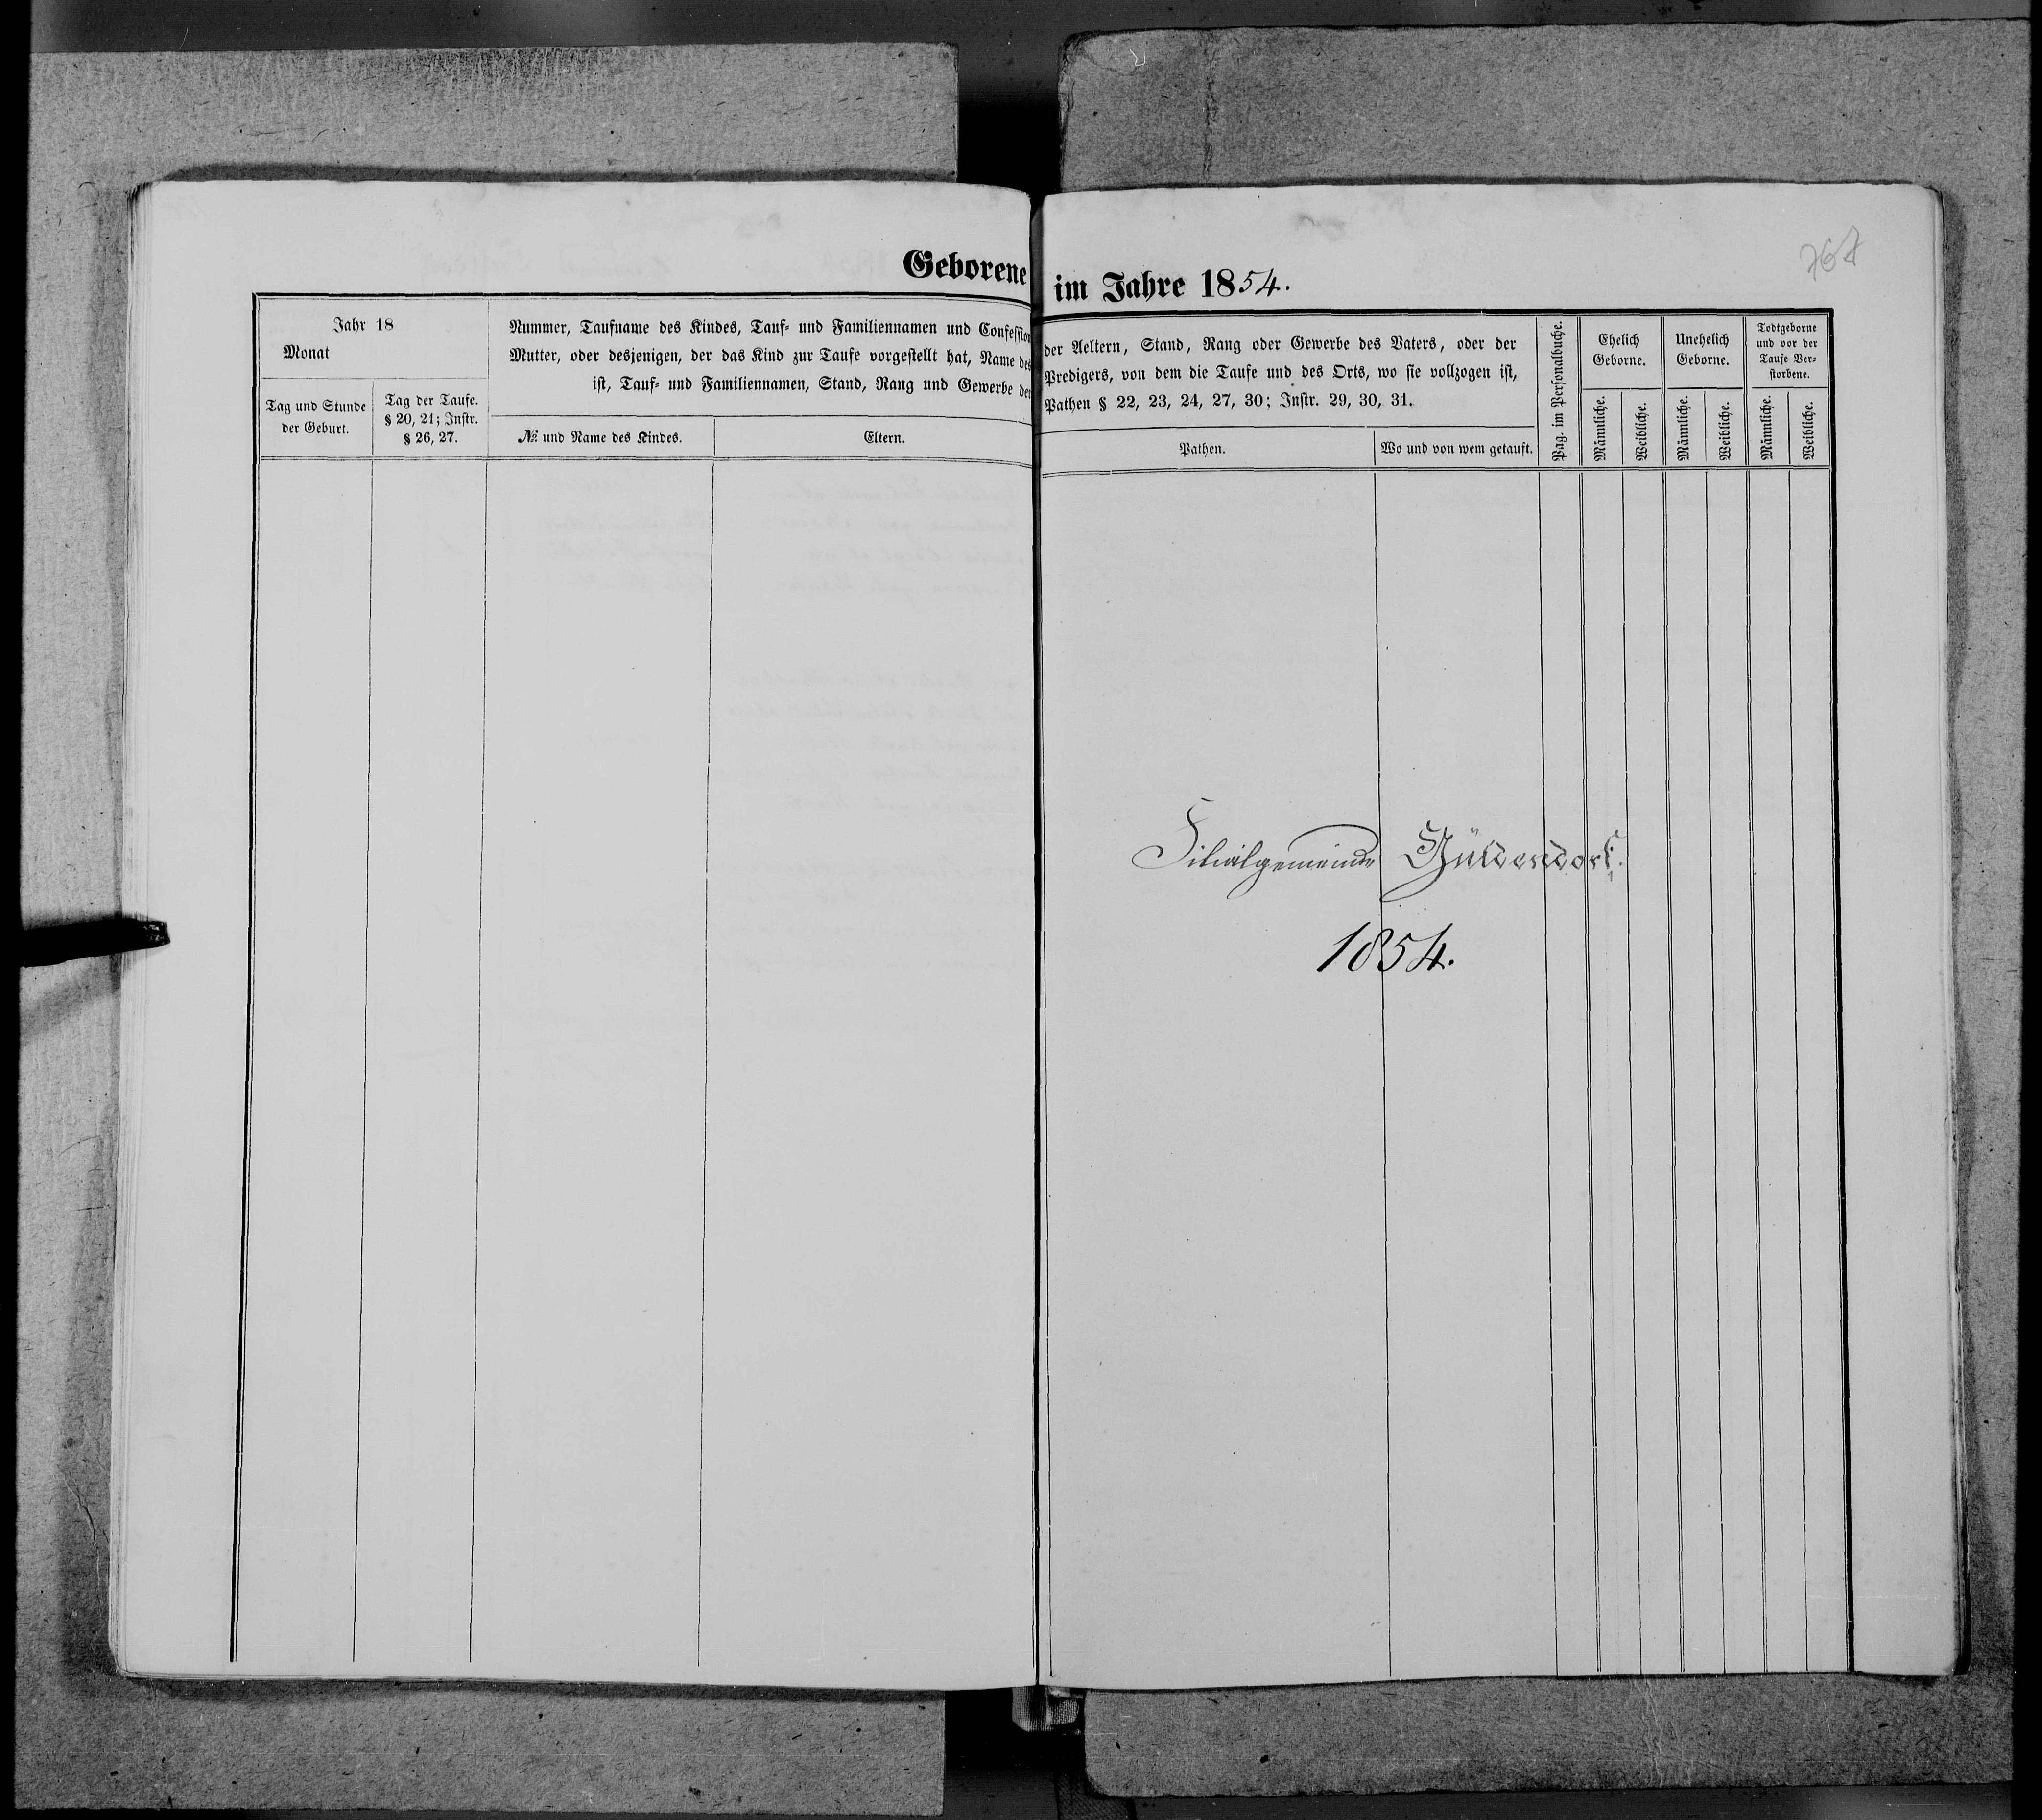 Geborene im Jahre 1854.
Jahr 18
Monat
Tag und Stunde der Geburt.
Tag der Taufe. § 20, 21; Instr. § 26, 27.
Nummer, Taufname des Kindes, Tauf- und Familiennamen und Confession der Aeltern, Stand, Rang oder Gewerbe des Vaters, oder der
Mutter, oder desjenigen, der das Kind zur Taufe vorgestellt hat, Name des Predigers, von dem die Taufe und des Orts, wo sie vollzogen ist,
ist, Tauf- und Familiennamen, Stand, Rang und Gewerbe der Pathen § 22, 23, 24, 27, 30; Instr. 29, 30, 31.
№ und Name des Kindes.
Eltern.
Pathen.
Wo und von wem getauft.
Pag. im Personalbuche.
Ehelich Geborne.
Männliche.
Weibliche.
Unehelich Geborne.
Männliche.
Weibliche.
Todtgeborne und vor der Taufe Verstorbene.
Männliche.
Weibliche.
Filialgemeinde Güldendorf.
1854.